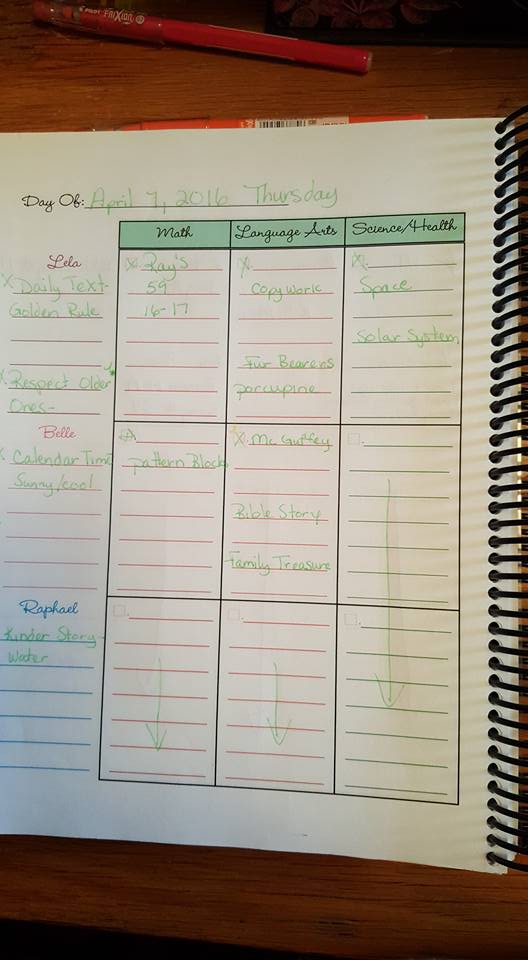 PILOT FRIXION
Day Of: April 7, 2016 Thursday
Math
Language Arts
Science/Health
Lela
X Daily Text-
Golden Rule
X. Respect Older
Ones-
X. Ray's
59
16-17
X.
Copywork
Fur Bearers
porcupine
X.
Space
Solar System
Belle
X Calendar Time
Sunny/cool
pattern Blocks
X. Mc Guffey
Bible Story
Family Treasure
Raphael
Kinder Story-
Water